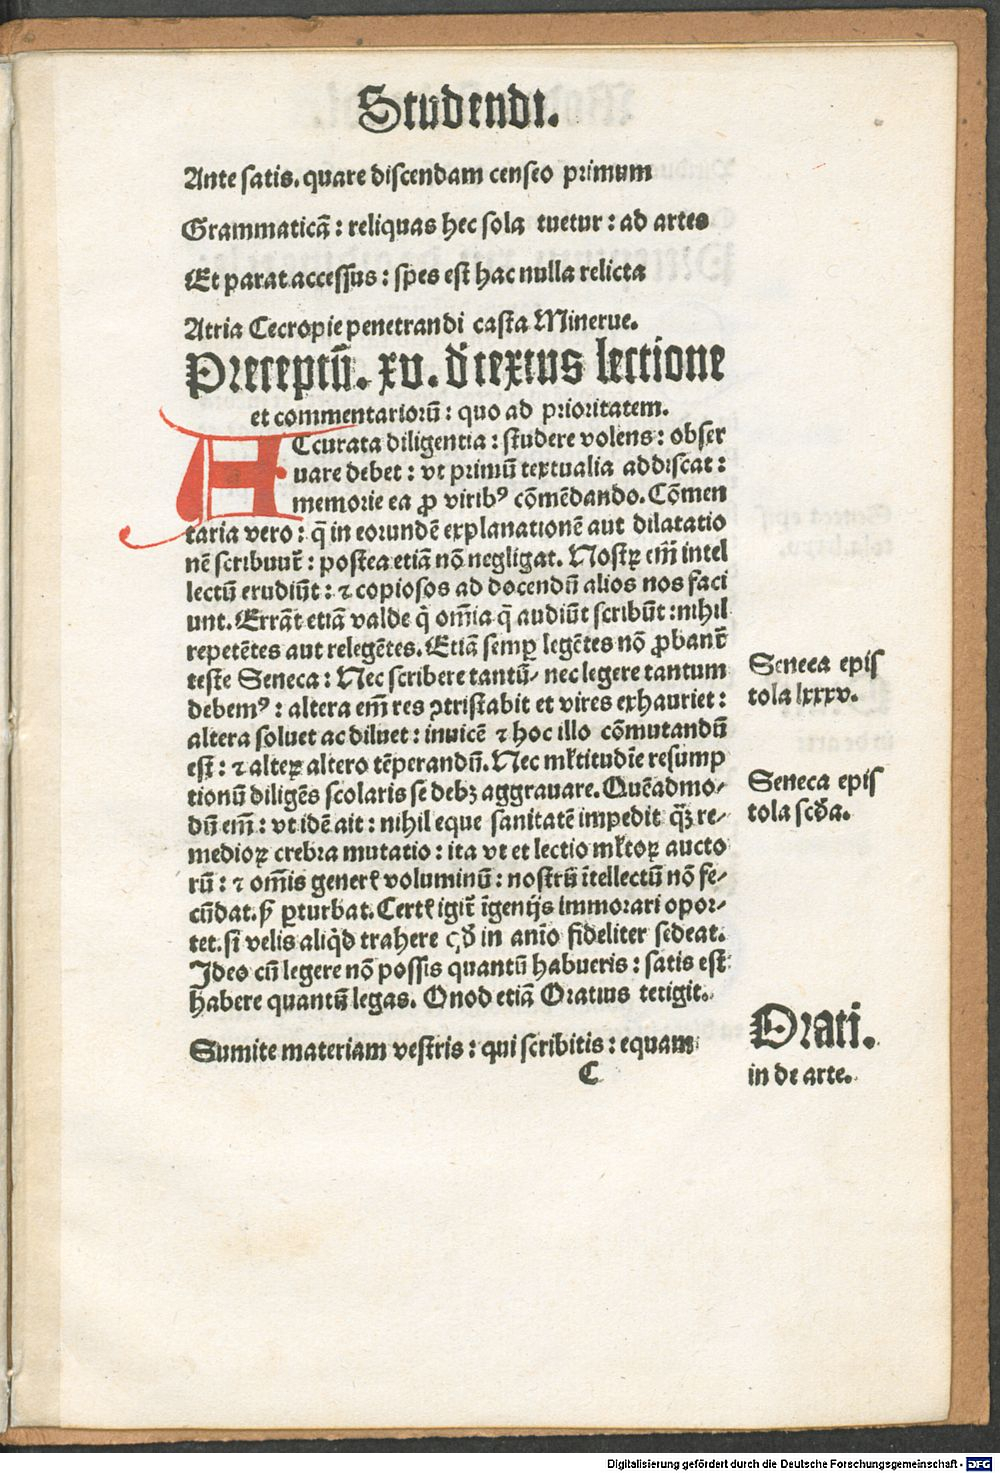 Studendi.
Ante satis. quare discendam censeo primum
Grammaticā: reliquas hec sola tuetur: ad artes
Et parat accessus: spes est hac nulla relicta
Atria Cecropie penetrandi casta Minerue.
Preceptū. xv. đ textus lectione
et commentariorū: quo ad prioritatem.
ACcurata diligentia: studere volens: obser
uare debet: vt primū textualia addiscat:
memorie ea ꝓ viribꝰ cōmēdando. Cōmen
taria vero: q̄ in eorundē explanationē aut dilatatio
nē scribunt̄: postea etiā nō negligat. Nostrꝝ em̄ intel
lectū erudiūt: ⁊ copiosos ad docendū alios nos faci
unt. Errāt etiā valde q̇ om̄ia q̄ audiūt scribūt: nihil
repetētes aut relegētes. Etiā semꝑ legētes nō ꝓbant̄
teste Seneca: Nec scribere tantū: nec legere tantum
debemꝰ: altera em̄ res ꝯtristabit et vires exhauriet:
altera soluet ac diluet: inuicē ⁊ hoc illo cōmutandū
est: ⁊ alteꝝ altero tēperandū. Nec mltitudīe resump
tionū diligēs scolaris se debꝫ aggrauare. Quēadmo-
dū em̄: vt idē ait: nihil eque sanitatē impedit qꝫ re-
medioꝝ crebra mutatio: ita vt et lectio mltoꝝ aucto
rū: ⁊ om̄is generꝭ voluminū: nostrū ītellectū nō fe-
cūdat. sꝫ ꝑturbat. Certꝭ igit̄ īgenijs immorari opor-
tet. si velis aliq̇d trahere qđ in anīo fideliter sedeat.
Ideo cū legere nō possis quantū habueris: satis est
habere quantū legas. Quod etiā Oratius tetigit.
Sumite materiam vestris: qui scribitis: equam
C
Seneca epis
tola lxxxv.
Seneca epis
tola scđa.
Orati.
in de arte.
Digitalisierung gefördert durch die Deutsche Forschungsgemeinschaft - DFG